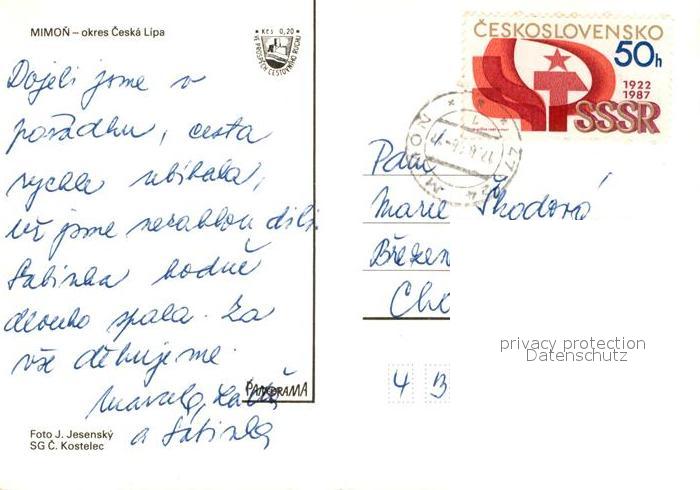 MIMOŇ – okres Česká Lípa
Kčs 0,20
VE PROSPĚCH CESTOVNÍHO RUCHU
ČESKOSLOVENSKO
50h
1922
1987
SSSR
Dojeli jsme v
pořádku, cesta
rychle ubíhala,
už jsme nezabloudili.
Sabinka hodně
dlouho spala. Za
vše děkujeme.
Marcela,
a Sabinka
Paní
Marie Škodová
Břežen
Cho
4 B
PANORAMA
Foto J. Jesenský
SG Č. Kostelec
privacy protection
Datenschutz